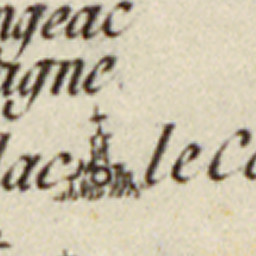 ngeac
agne
lac le Ca